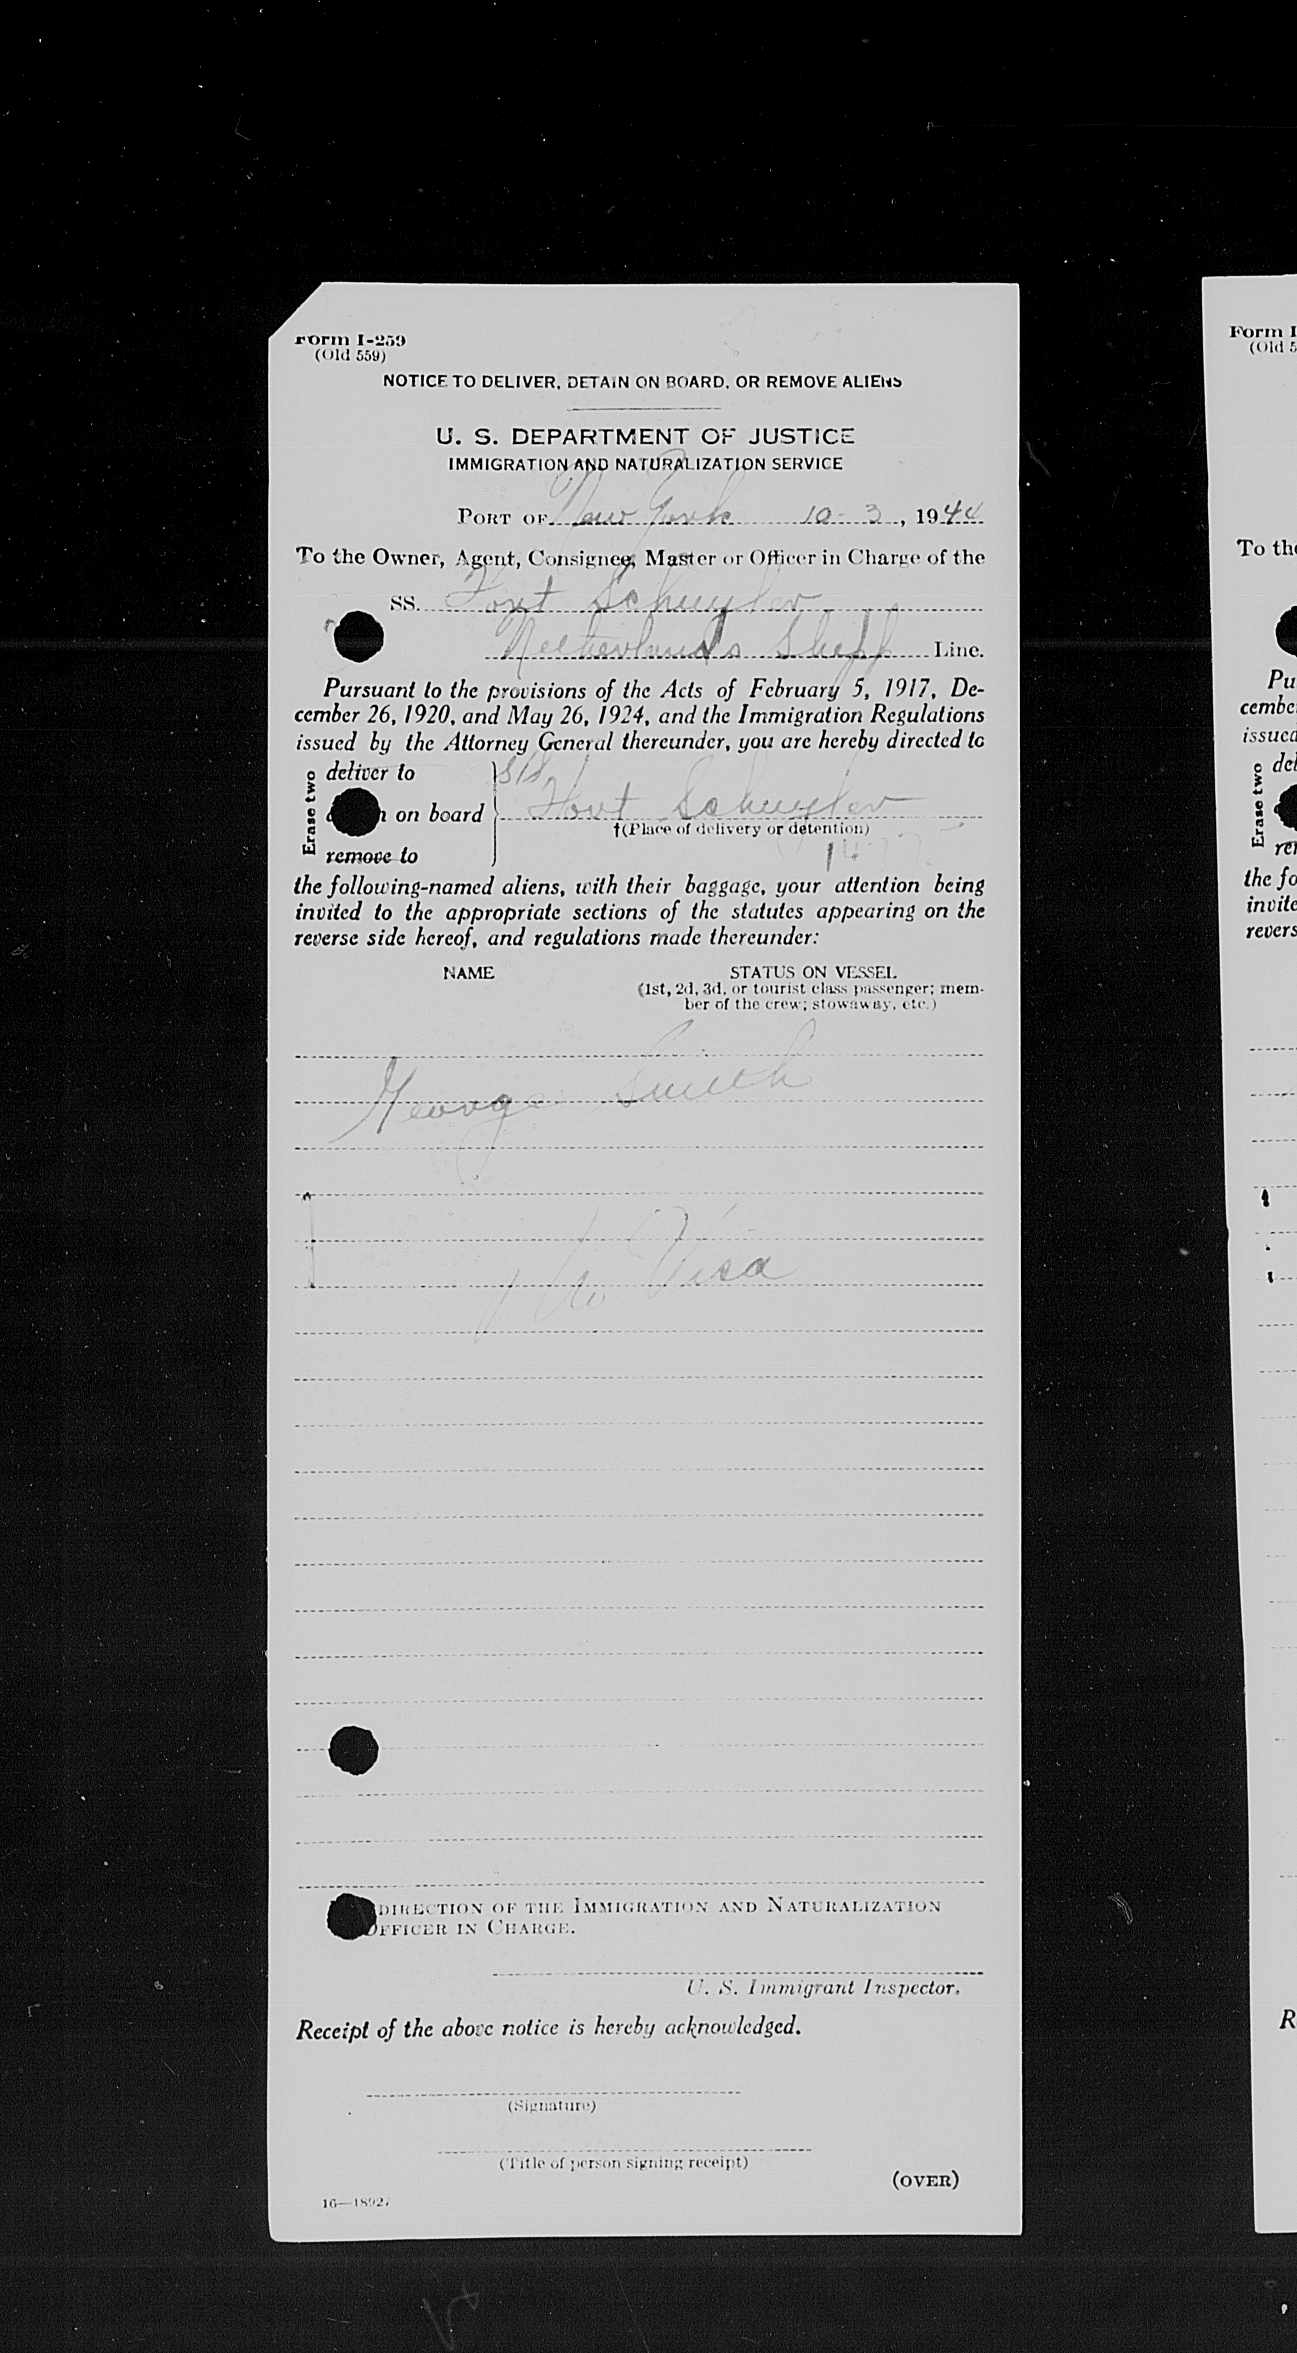 Form I-259
(Old 559)
NOTICE TO DELIVER, DETAIN ON BOARD, OR REMOVE ALIENS
U. S. DEPARTMENT OF JUSTICE
IMMIGRATION AND NATURALIZATION SERVICE
PORT OF New York 10-3, 1944
To the Owner, Agent, Consignee, Master or Officer in Charge of the
SS. Fort Schuyler
Netherlands Shipp Line.
Pursuant to the provisions of the Acts of February 5, 1917, De-
cember 26, 1920, and May 26, 1924, and the Immigration Regulations
issued by the Attorney General thereunder, you are hereby directed to
Erase two
deliver to
on board
remove to
S/S
Fort Schuyler
†(Place of delivery or detention)
the following-named aliens, with their baggage, your attention being
invited to the appropriate sections of the statutes appearing on the
reverse side hereof, and regulations made thereunder:
NAME STATUS ON VESSEL
(1st, 2d, 3d, or tourist class passenger; mem-
ber of the crew; stowaway, etc.)
George Smith
No Visa
DIRECTION OF THE IMMIGRATION AND NATURALIZATION
OFFICER IN CHARGE.
U. S. Immigrant Inspector.
Receipt of the above notice is hereby acknowledged.
(Signature)
(Title of person signing receipt)
(OVER)
16—18927
Form I
(Old 5
To the
Pu
cember
issued
Erase two
del
rer
the fo
invite
revers
R